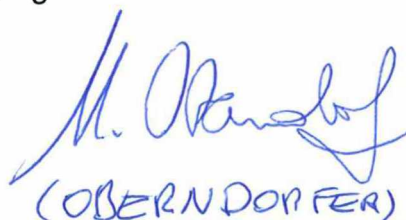 M. Oberndorfer
(OBERNDORFER)